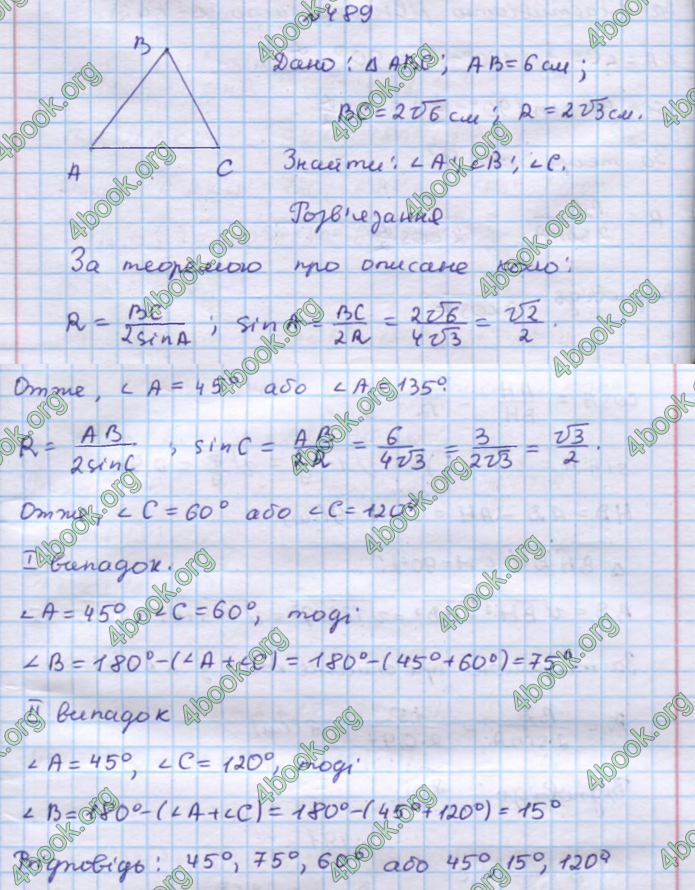 №489
B
A
C
Дано: Δ ABC; AB = 6 см;
BC = 2√6 см; R = 2√3 см.
Знайти: ∠A; ∠B; ∠C.
Розв'язання
За теоремою про описане коло:
R = BC / 2sinA ; sinA = BC / 2R = 2√6 / 4√3 = √2 / 2 .
Отже, ∠A = 45° або ∠A = 135°.
R = AB / 2sinC ; sinC = AB / 2R = 6 / 4√3 = 3 / 2√3 = √3 / 2 .
Отже, ∠C = 60° або ∠C = 120°
I випадок.
∠A = 45°, ∠C = 60°, тоді
∠B = 180° − (∠A + ∠C) = 180° − (45° + 60°) = 75°.
II випадок
∠A = 45°, ∠C = 120°, тоді
∠B = 180° − (∠A + ∠C) = 180° − (45° + 120°) = 15°
Відповідь: 45°, 75°, 60° або 45°, 15°, 120°.
4book.org